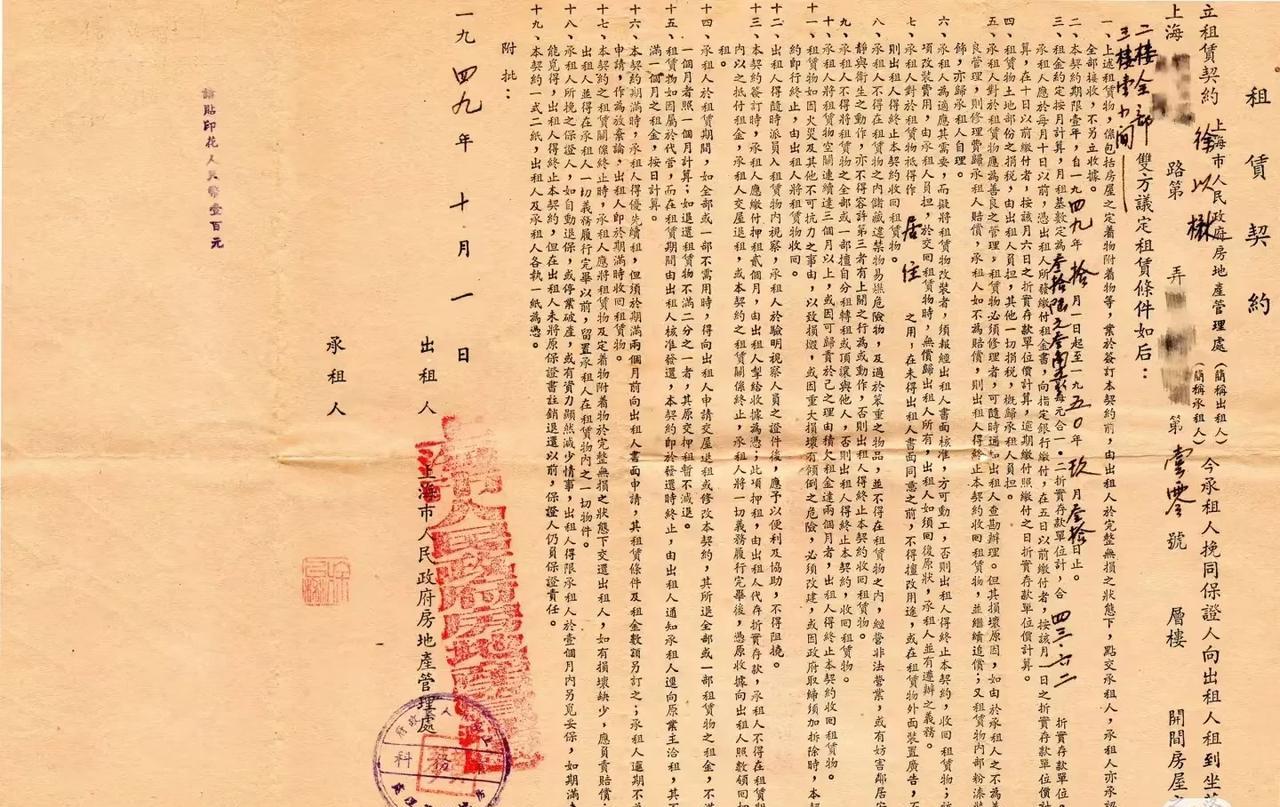 租賃契約
立租賃契約
上海市人民政府房地產管理處(簡稱出租人)
徐以楙
(簡稱承租人)
今承租人挽同保證人向出租人租到坐落
上海
路第
弄
第壹零號
層樓
開間房屋
二樓全部
三樓壹小間
雙方議定租賃條件如后:
一、上述租賃物,係包括房屋之定着物附着物等,業於簽訂本契約前,由出租人於完整無損之狀態下,點交承租人,承租人亦承認
全部接收,不另立收據。
二、本契約期限壹年,自一九四九年拾月一日起至一九五〇年玖月叁拾日止。
三、租金約定按月計算,月租基數定為
每元合一·二折實存款單位計,合四三·六二折實存款單位。
承租人應於每月十日以前,憑出租人所發繳付租金書,向指定銀行繳付,在五日以前繳付者,按該月一日之折實存款單位價計
算,在十日以前繳付者,按該月六日之折實存款單位價計算,逾期繳付照繳付之日折實存款單位價計算。
四、租賃物土地部份之捐稅,由出租人員担,其他一切捐稅,概歸承租人員担。
五、承租人對於租賃物應為善良之管理,租賃物必須修理者,可隨時通知出租人查勘辦理。但其損壞原因,如由於承租人之不為善
良管理,則修理費歸承租人賠償,承租人如不為賠償,則出租人得終止本契約收回租賃物,並繼續追償;又租賃物內部粉漆裝
飾,亦歸承租人自理。
六、承租人為適應其需要,而擬將租賃物改裝者,須報經出租人書面核准,方可動工,否則出租人得終止本契約,收回租賃物;該
項改裝費用,由承租人員担,於交回租賃物時,無償歸出租人所有,出租人如須回復原狀,承租人並有遵辦之義務。
七、承租人對於租賃物祇得作居住之用,在未得出租人書面同意之前,不得擅改用途,或在租賃物外面裝置廣告,
則出租人得終止本契約收回租賃物。
八、承租人不得在租賃物之內儲藏違禁物易爆危險物,及過於笨重之物品,並不得在租賃物之內,經營非法營業,或有妨害鄰居安
靜與衛生之動作,亦不得容許第三者有上開之行為或動作,否則出租人得終止本契約收回租賃物。
九、承租人不得將租賃物之全部或一部擅自分租轉租或頂讓與他人,否則出租人得終止本契約,收回租賃物。
十、承租人不得將租賃物空關連續達三個月以上,或因可歸責於己之理由積欠租金達兩個月者,出租人得終止本契約收回租賃物。
十一、租賃物如因火災及其他不可抗力之事由,以致損燬,或因重大損壞有傾倒之危險,必須改建,或因政府取締須加拆除時,本契
約即行終止,由出租人將租賃物收回。
十二、出租人得隨時派員入租賃物內視察,承租人於驗明視察人員之證件後,應予以便利及協助,不得阻撓。
十三、本契約簽訂時,承租人應繳付押租貳個月,由出租人掣給收據為憑;此項押租,由出租人代存折實存款,承租人不得在租賃期
內以之抵付租金,承租人交屋退租,或本契約之租賃關係終止,承租人將一切義務履行完畢後,憑原收據向出租人照數領回押
租。
十四、承租人於租賃期間,如全部或一部不需用時,得向出租人申請交屋退租或修改本契約,其所退全部或一部租賃物之租金,不滿
一個月者照一個月計算;如退還租賃物不滿二分之一者,其原交押租暫不減退。
十五、租賃物如因屬於代管,而在租賃期間由出租人核准發還,本契約即於發還時終止,由出租人通知承租人逕向原業主洽租,其不
滿一個月之租金,按日計算。
十六、本契約期滿時,承租人得優先續租,但須於期滿兩個月前向出租人書面申請,其租賃條件及租金數額另訂之;承租人逾期不為
申請,作為放棄論,出租人即於期滿時收回租賃物。
十七、本契約之租賃關係終止時,承租人應將租賃物及定着物附着物於完整無損之狀態下交還出租人,如有損壞缺少,應員責賠償,
出租人並得在承租人一切義務履行完畢以前,留置承租人在租賃物內之一切物件。
十八、承租人所挽之保證人,如自動退保,或停業破產,或有資力顯然減少情事,出租人得限承租人於壹個月內另覓妥保,如期滿
能覓得,出租人得終止本契約,但在出租人未將原保證書註銷退還以前,保證人仍員保證責任。
十九、本契約一式二紙,出租人及承租人各執一紙為憑。
附批:
一九四九年十月一日
出租人
上海市人民政府房地產管理處
承租人
請貼印花人民幣壹百元